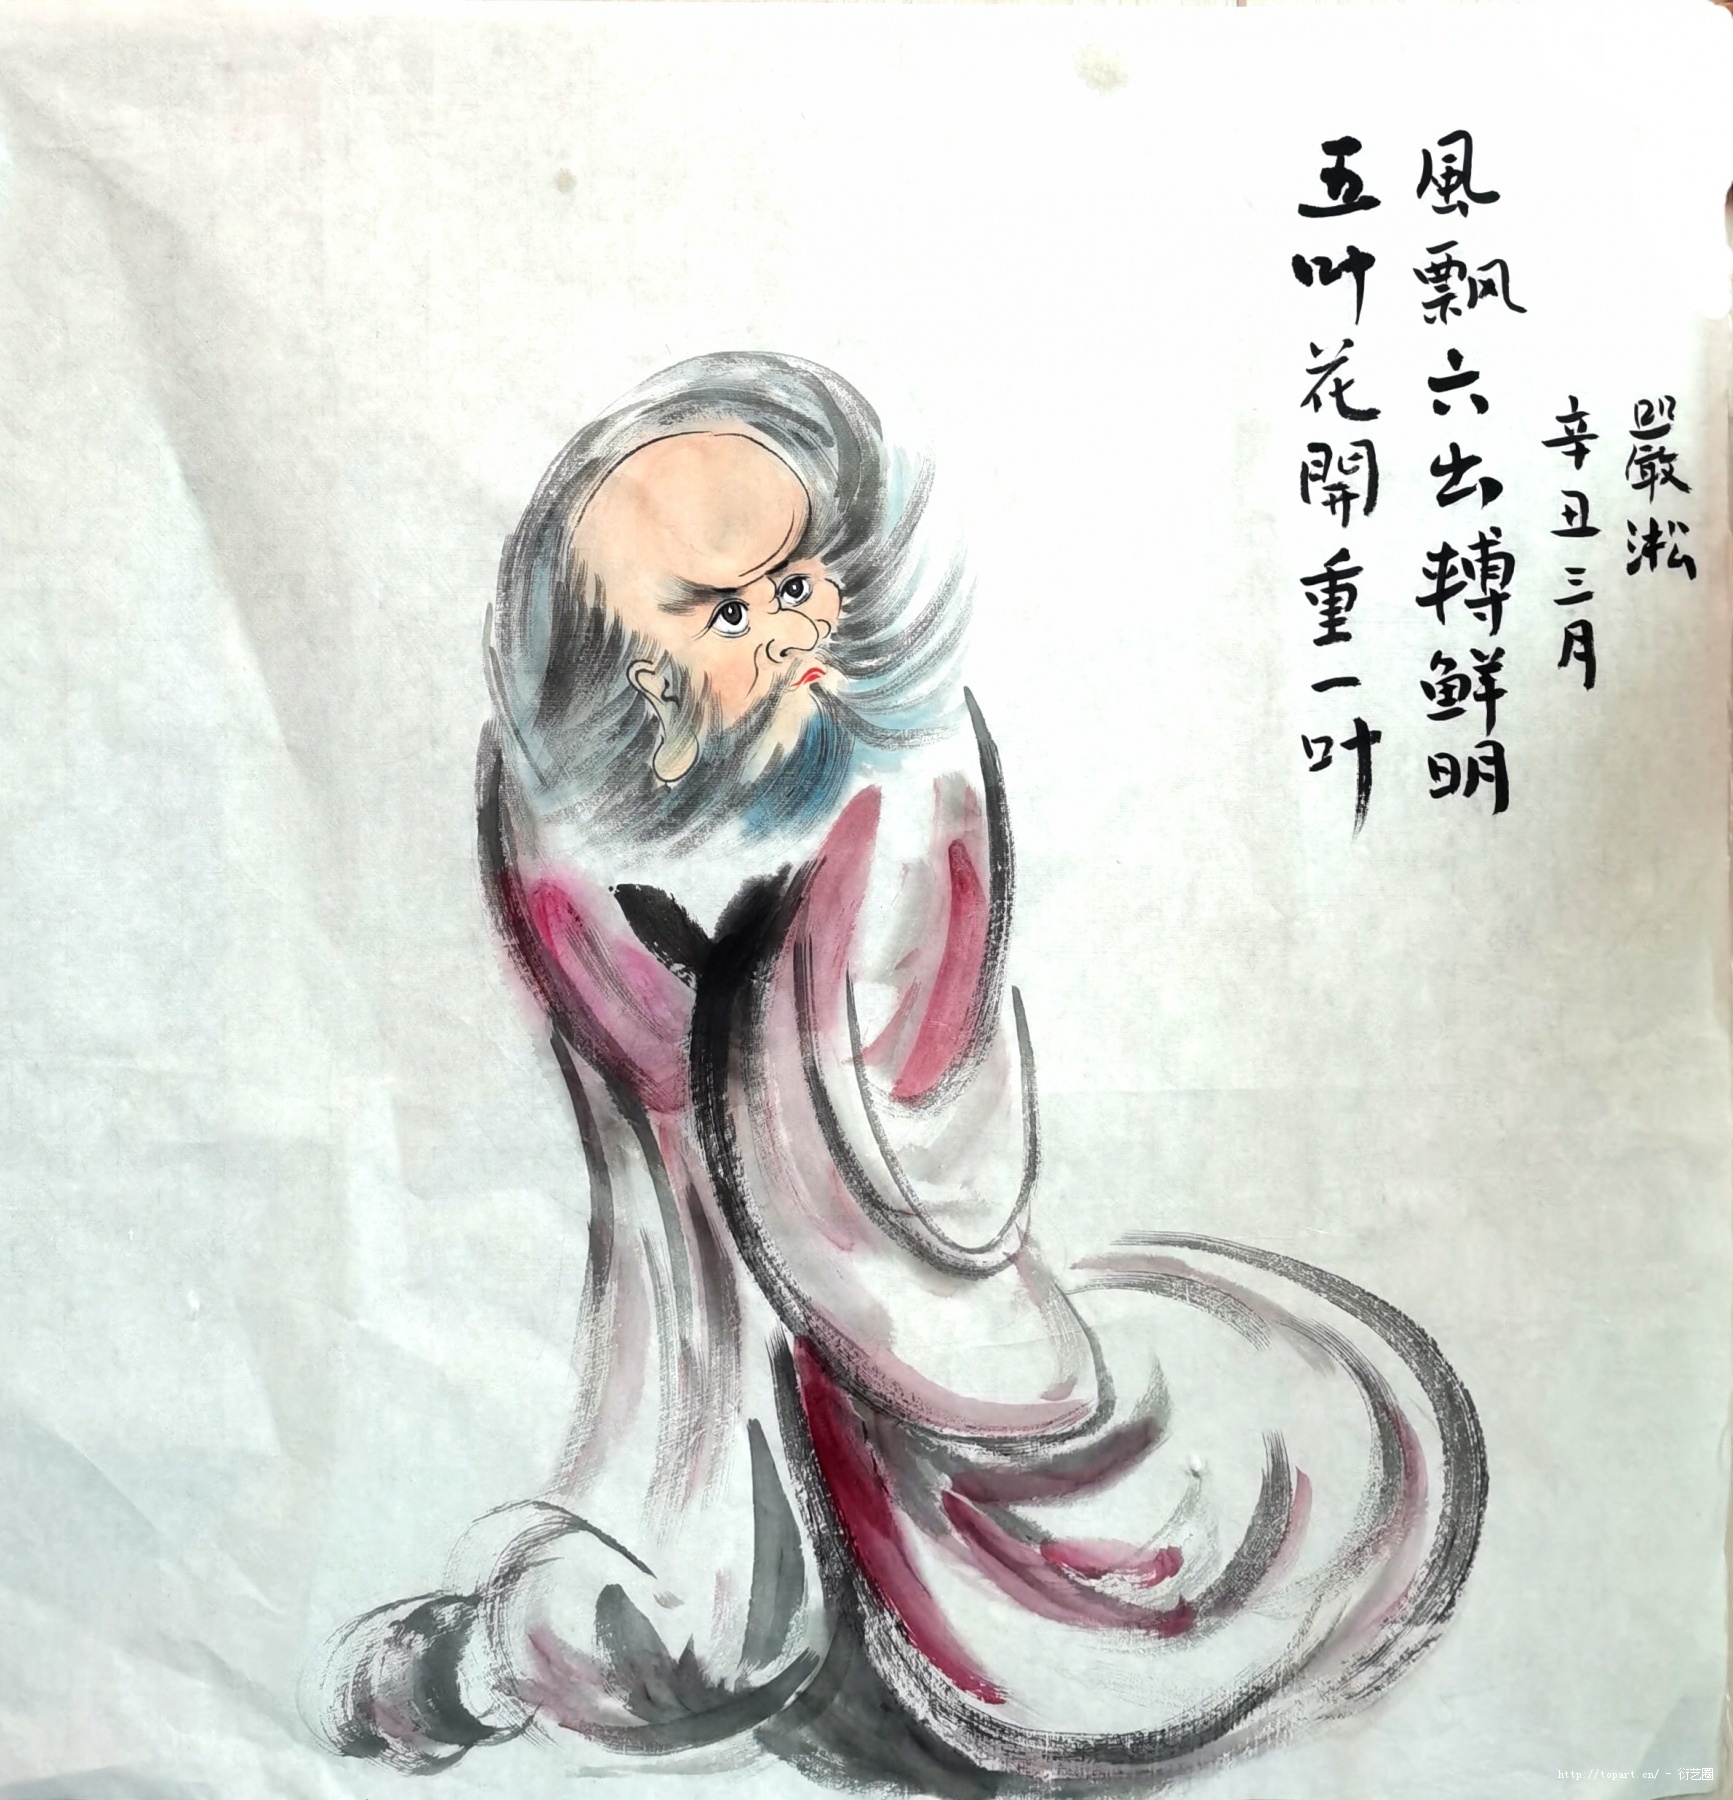 嚴淞
辛丑三月
風飘六出轉鮮明
五叶花開重一叶
http://topart.cn/ - 衍艺圈